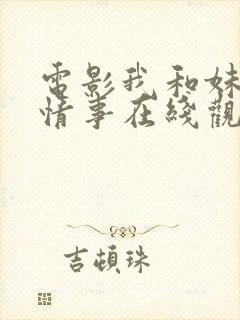 電影我和妹
情事在綫觀
吉頓珠